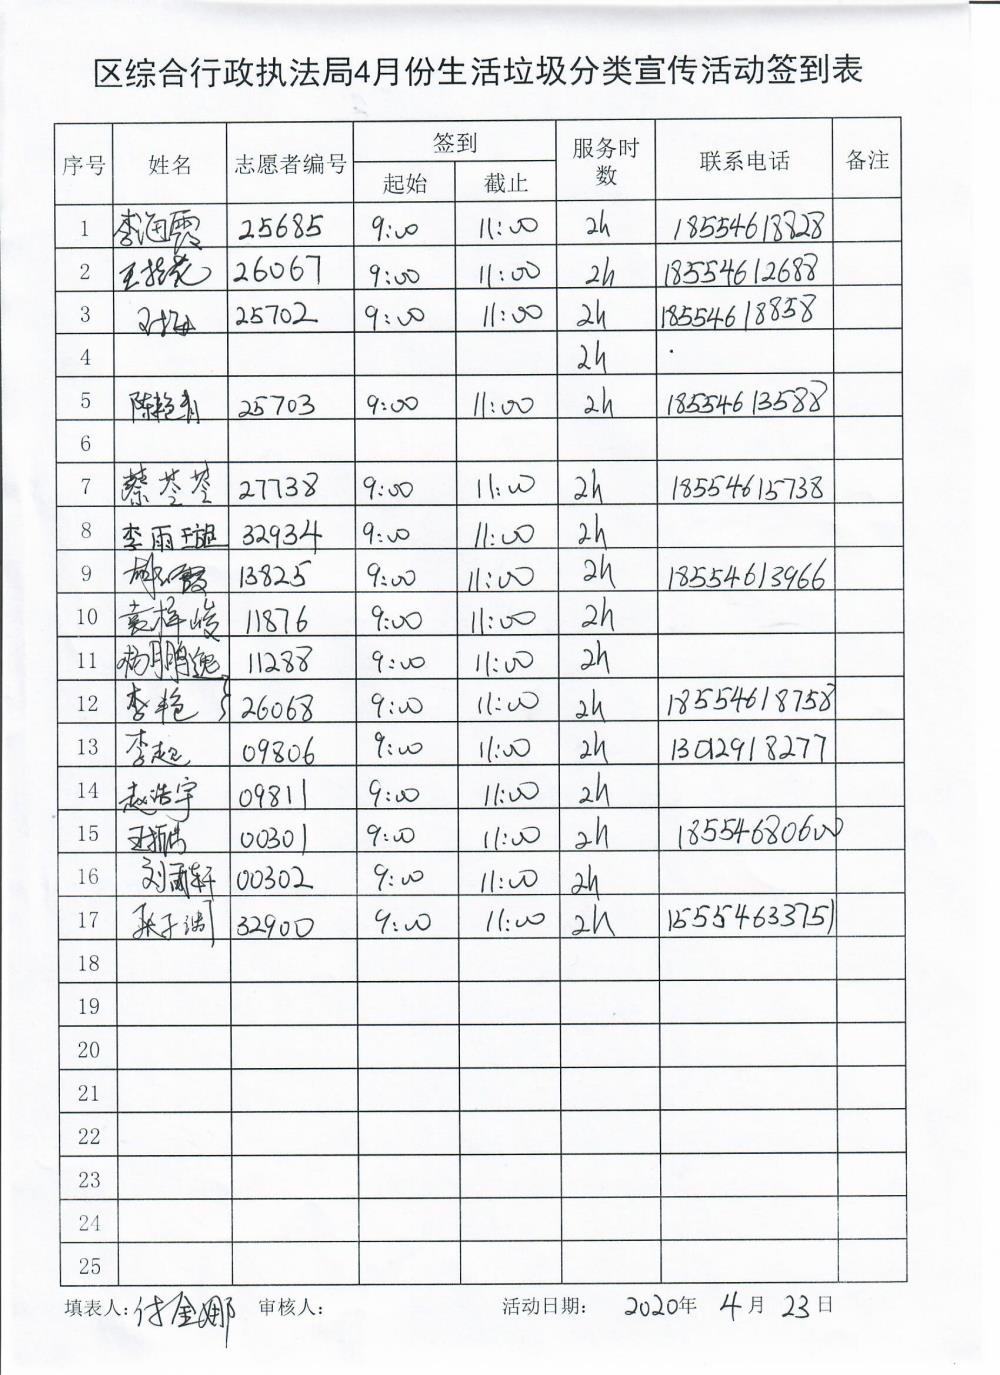 区综合行政执法局4月份生活垃圾分类宣传活动签到表
序号 姓名 志愿者编号 签到 服务时数 联系电话 备注
起始 截止
1 李海霞 25685 9:00 11:00 2h 18554618828
2 王桂花 26067 9:00 11:00 2h 18554612688
3 25702 9:00 11:00 2h 18554618858
4 2h
5 陈艳青 25703 9:00 11:00 2h 18554613588
6
7 蔡苓苓 27738 9:00 11:00 2h 18554615738
8 李雨璇 32934 9:00 11:00 2h
9 13825 9:00 11:00 2h 18554613966
10 袁梓峻 11876 9:00 11:00 2h
11 杨鹏逸 11288 9:00 11:00 2h
12 李艳 26068 9:00 11:00 2h 18554618758
13 李起 09806 9:00 11:00 2h 13012918277
14 赵浩宇 09811 9:00 11:00 2h
15 00301 9:00 11:00 2h 18554680600
16 刘雨轩 00302 9:00 11:00 2h
17 32900 9:00 11:00 2h 15554633751
18
19
20
21
22
23
24
25
填表人:付金娜 审核人: 活动日期: 2020年 4月 23日